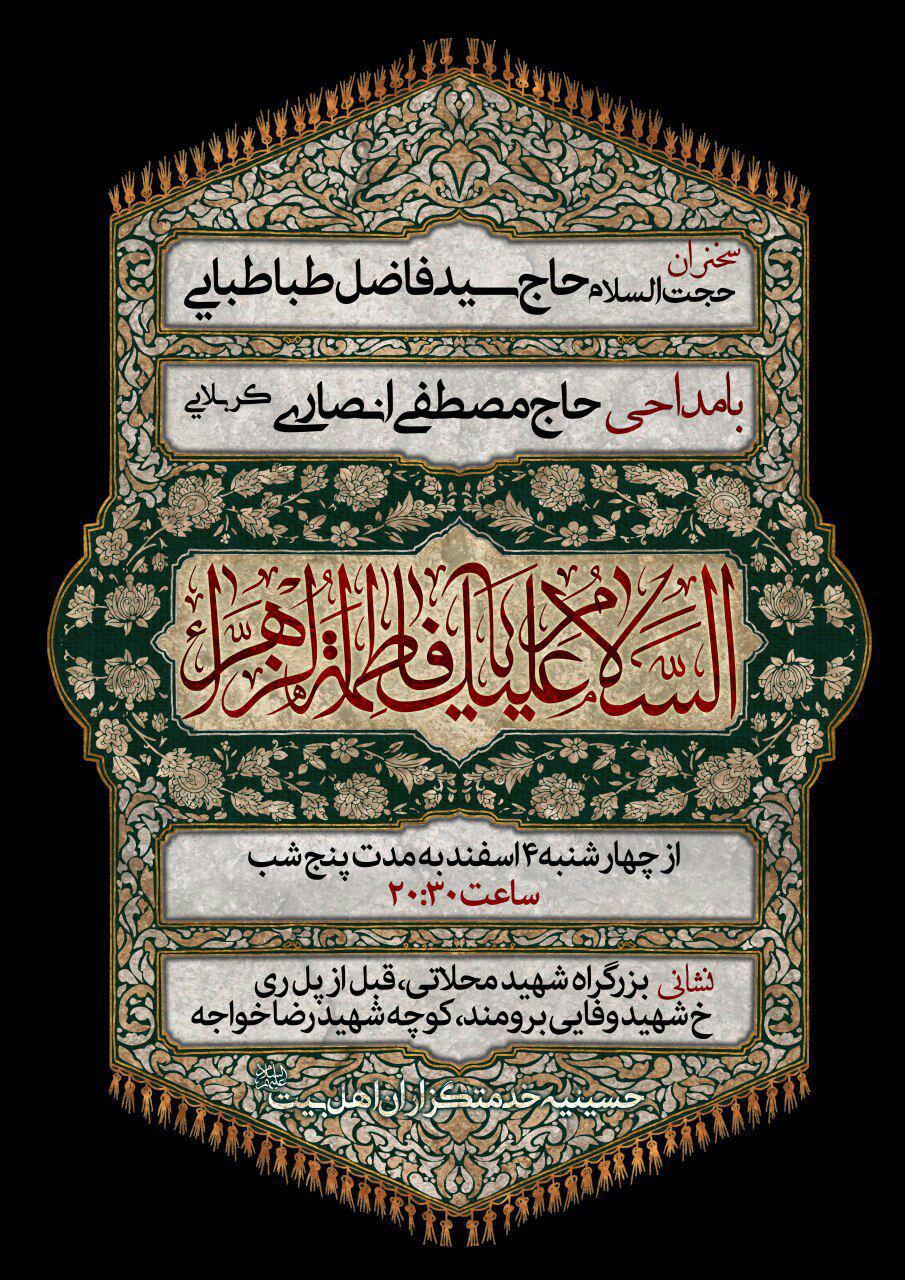 سخنران
حجت السلام حاج سید فاضل طباطبایی
بامداحی حاج مصطفی انصاری کربلایی
السَّلامُ عَلَیكِ یا فاطِمَةُ الزَّهْرَاء
از چهارشنبه ۴ اسفند به مدت پنج شب
ساعت ۲۰:۳۰
نشانی بزرگراه شهید محلاتی، قبل از پل ری
خ شهید وفایی برومند، کوچه شهید رضا خواجه
علیهم السلام
حسینیه خدمتگزاران اهل بیت